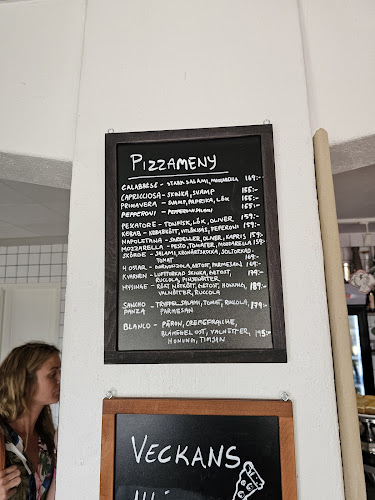 PIZZAMENY
CALABRESE - STARK SALAMI, MOZZARELLA 169:-
CAPRICCIOSA - SKINKA, SVAMP 155:-
PRIMAVERA - SVAMP, PAPRIKA, LÖK 155:-
PEPPERONI - PEPPERONI 155:-
PESCATORE - TONFISK, LÖK, OLIVER 159:-
KEBAB - KEBABKÖTT, VITLÖKSSÅS, PEPERONI 159:-
NAPOLETANA - SARDELLER, OLIVER, KAPRIS 159:-
MOZZARELLA - PESTO, TOMATER, MOZZARELLA 159:-
SKÖRDE - SALAMI, KRONÄRTSKOCKA, SOLTORKAD TOMAT 169:-
4 OSTAR - GORGONZOLA, GETOST, PARMESAN 169:-
KVARNEN - LUFTTORKAD SKINKA, GETOST, 179:-
RUCCOLA, PINJENÖTTER
HYSINGE - RÖKT NÖTKÖTT, GETOST, HONUNG, 189:-
VALNÖTTER, RUCCOLA
SANCHO - TRYFFELSALAMI, TOMAT, RUCOLA, 179:-
PANZA PARMESAN
BLANCO - PÄRON, CREMEFRAICHE,
BLÅMÖGELOST, VALNÖTTER, 195:-
HONUNG, TIMJAN
VECKANS